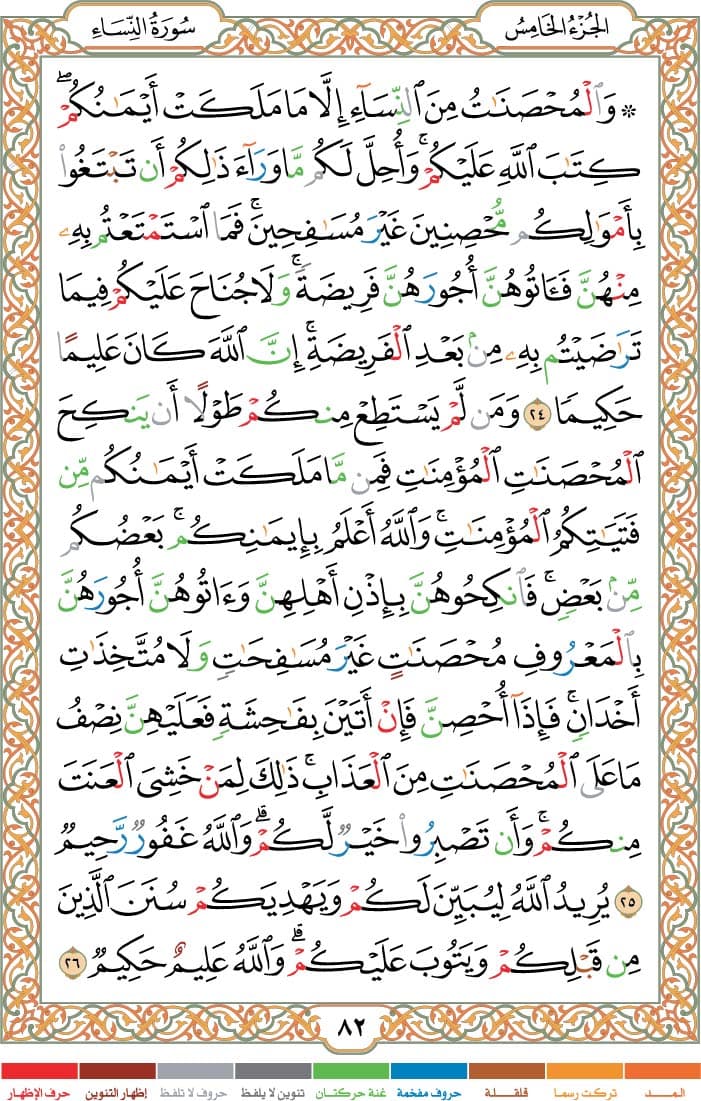 الجُزْءُ الخَامِسُ
سُورَةُ النِّسَاءِ
۞ وَٱلْمُحْصَنَٰتُ مِنَ ٱلنِّسَآءِ إِلَّا مَا مَلَكَتْ أَيْمَٰنُكُمْۖ
كِتَٰبَ ٱللَّهِ عَلَيْكُمْۚ وَأُحِلَّ لَكُم مَّا وَرَآءَ ذَٰلِكُمْ أَن تَبْتَغُوا۟
بِأَمْوَٰلِكُم مُّحْصِنِينَ غَيْرَ مُسَٰفِحِينَۚ فَمَا ٱسْتَمْتَعْتُم بِهِۦ
مِنْهُنَّ فَـَٔاتُوهُنَّ أُجُورَهُنَّ فَرِيضَةًۚ وَلَا جُنَاحَ عَلَيْكُمْ فِيمَا
تَرَٰضَيْتُم بِهِۦ مِنۢ بَعْدِ ٱلْفَرِيضَةِۚ إِنَّ ٱللَّهَ كَانَ عَلِيمًا
حَكِيمًا ٢٤ وَمَن لَّمْ يَسْتَطِعْ مِنكُمْ طَوْلًا أَن يَنكِحَ
ٱلْمُحْصَنَٰتِ ٱلْمُؤْمِنَٰتِ فَمِن مَّا مَلَكَتْ أَيْمَٰنُكُم مِّن
فَتَيَٰتِكُمُ ٱلْمُؤْمِنَٰتِۚ وَٱللَّهُ أَعْلَمُ بِإِيمَٰنِكُمۚ بَعْضُكُم
مِّنۢ بَعْضٍۚ فَٱنكِحُوهُنَّ بِإِذْنِ أَهْلِهِنَّ وَءَاتُوهُنَّ أُجُورَهُنَّ
بِٱلْمَعْرُوفِ مُحْصَنَٰتٍ غَيْرَ مُسَٰفِحَٰتٍ وَلَا مُتَّخِذَٰتِ
أَخْدَانٍۚ فَإِذَآ أُحْصِنَّ فَإِنْ أَتَيْنَ بِفَٰحِشَةٍ فَعَلَيْهِنَّ نِصْفُ
مَا عَلَى ٱلْمُحْصَنَٰتِ مِنَ ٱلْعَذَابِۚ ذَٰلِكَ لِمَنْ خَشِىَ ٱلْعَنَتَ
مِنكُمْۚ وَأَن تَصْبِرُوا۟ خَيْرٌ لَّكُمْۗ وَٱللَّهُ غَفُورٌ رَّحِيمٌ
٢٥ يُرِيدُ ٱللَّهُ لِيُبَيِّنَ لَكُمْ وَيَهْدِيَكُمْ سُنَنَ ٱلَّذِينَ
مِن قَبْلِكُمْ وَيَتُوبَ عَلَيْكُمْۗ وَٱللَّهُ عَلِيمٌ حَكِيمٌ ٢٦
٨٢
المـــد تركت رسما قلقـلة حروف مفخمة غنة حركتان تنوين لا يلفظ حروف لا تلفظ إظهار التنوين حرف الإظهار